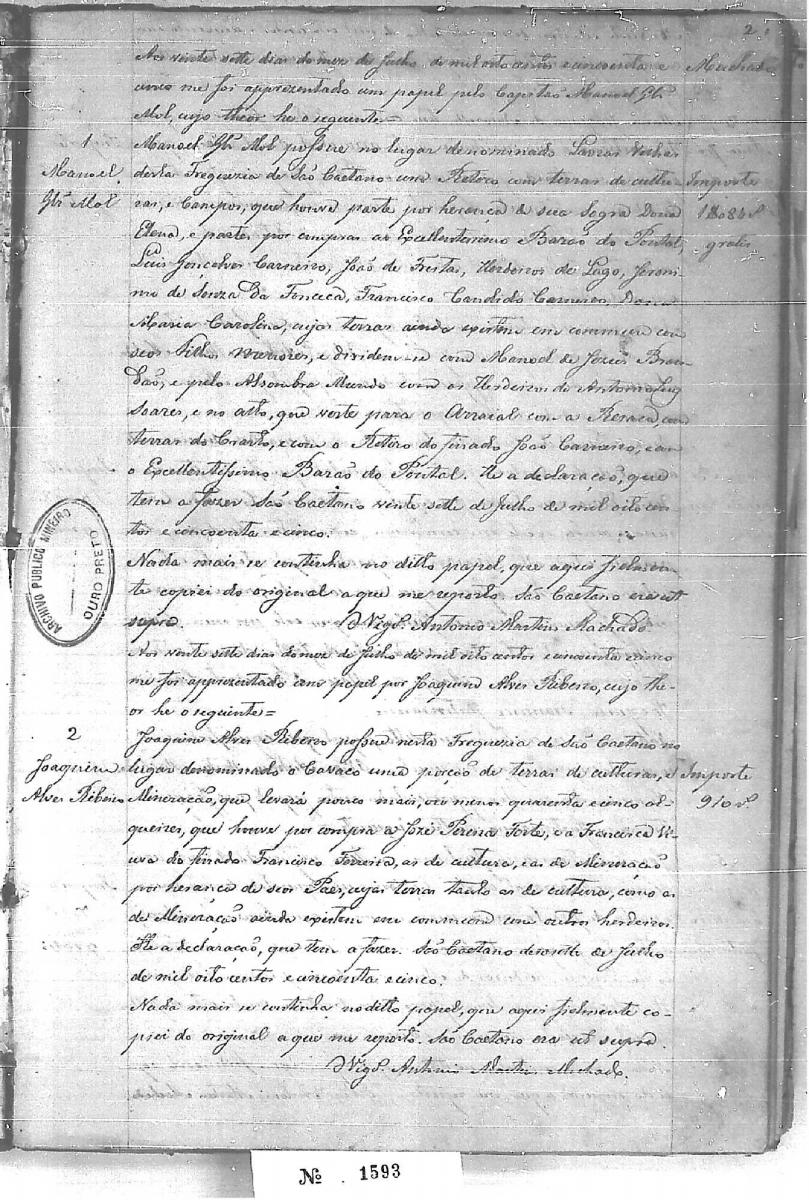 2
Aos vinte sette dias do mez de Julho de mil oito centos e cincoenta e
cinco me foi apprezentado um papel pelo Capitão Manoel Glz
Mol, cujo theor he o seguinte =
Machado
1
Manoel
Glz Mol
Manoel Glz Mol possue no lugar denominado Lavras Velhas
desta Freguezia de São Caetano um Retiro com terras de cultu-
ras, e Campos, que houve parte por herança de sua Sogra Dona
Elena, e partes por compras ao Excellentissimo Barão do Pontal,
Luis Gonçalves Carneiro, João de Freitas, Herdeiros de Lago, Jeroni-
mo de Souza da Fonceca, Francisco Candido Carneiro, Dona
Maria Carolina, cujas terras ainda existem em commum com
seos Filhos menores, e dividem-se com Manoel de Jezus Bran-
dão, e pelo Assombra Mundo com os Herdeiros de Antonio Luiz
Soares, e no alto, que verte para o Arraial com a
terras do Crasto, e com o Retiro do finado João Carneiro, e com
o Excellentissimo Barão do Pontal. He a declaração, que
tem a fazer São Caetano vinte sette de Julho de mil oito cen-
tos e cincoenta e cinco.
Importe
grátis
Nada mais se continha no ditto papel, que aqui fielmen-
te copiei do original a que me reporto. São Caetano era ut
supra. O Vigº Antonio Martins Machado.
Nos vente sette dias do mez de Julho de mil oito centos e cincoenta e cinco
me foi apprezentado um papel por Joaquim Alves Ribeiro, cujo the-
or he o seguinte =
2
Joaquim
Alves Ribeiro
Joaquim Alves Ribeiro possue nesta Freguezia de São Caetano no
lugar denominado o Cavaco uma porção de terras de culturas, e
Mineração, que levará pouco mais, ou menos quarenta e cinco al-
queires, que houve por compra a Jozé Pereira Forte, e a Francisca Vi-
uva do finado Francisco Ferreira, as de cultura, e as de Mineração
por herança de seos Paes, cujas terras tanto as de cultura, como as
de Mineração ainda existem em commum com outros herdeiros.
He a declaração, que tem a fazer. São Caetano desasette de Julho
de mil oito centos e cincoenta e cinco.
Importe
910 rs.
Nada mais se continha no ditto papel, que aqui fielmente co-
piei do original a que me reporto. São Caetano era ut supra.
O Vigº Antonio Martins Machado.
ARCHIVO PUBLICO MINEIRO
OURO PRETO
No. 1593